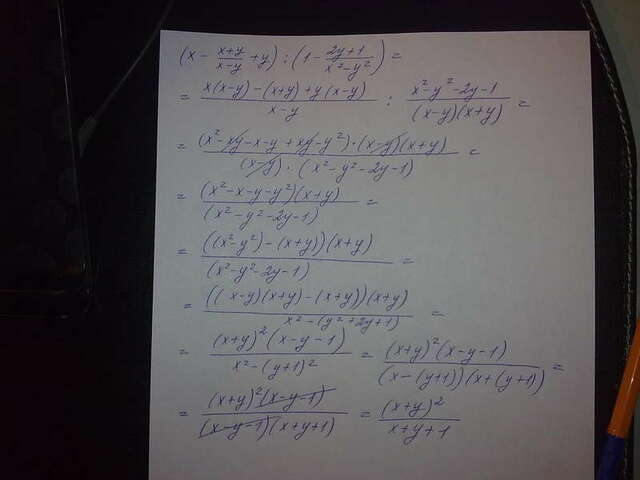 (x - (x+y)/(x-y) + y) : (1 - (2y+1)/(x²-y²)) =
= (x(x-y) - (x+y) + y(x-y))/(x-y) : (x²-y²-2y-1)/((x-y)(x+y)) =
= ((x²-xy-x-y+xy-y²)·(x-y)(x+y))/((x-y)·(x²-y²-2y-1)) =
= ((x²-x-y-y²)(x+y))/((x²-y²-2y-1)) =
= (((x²-y²)-(x+y))(x+y))/((x²-y²-2y-1)) =
= (((x-y)(x+y)-(x+y))(x+y))/(x²-(y²+2y+1)) =
= ((x+y)²(x-y-1))/(x²-(y+1)²) = ((x+y)²(x-y-1))/((x-(y+1))(x+(y+1))) =
= ((x+y)²(x-y-1))/((x-y-1)(x+y+1)) = (x+y)²/(x+y+1)